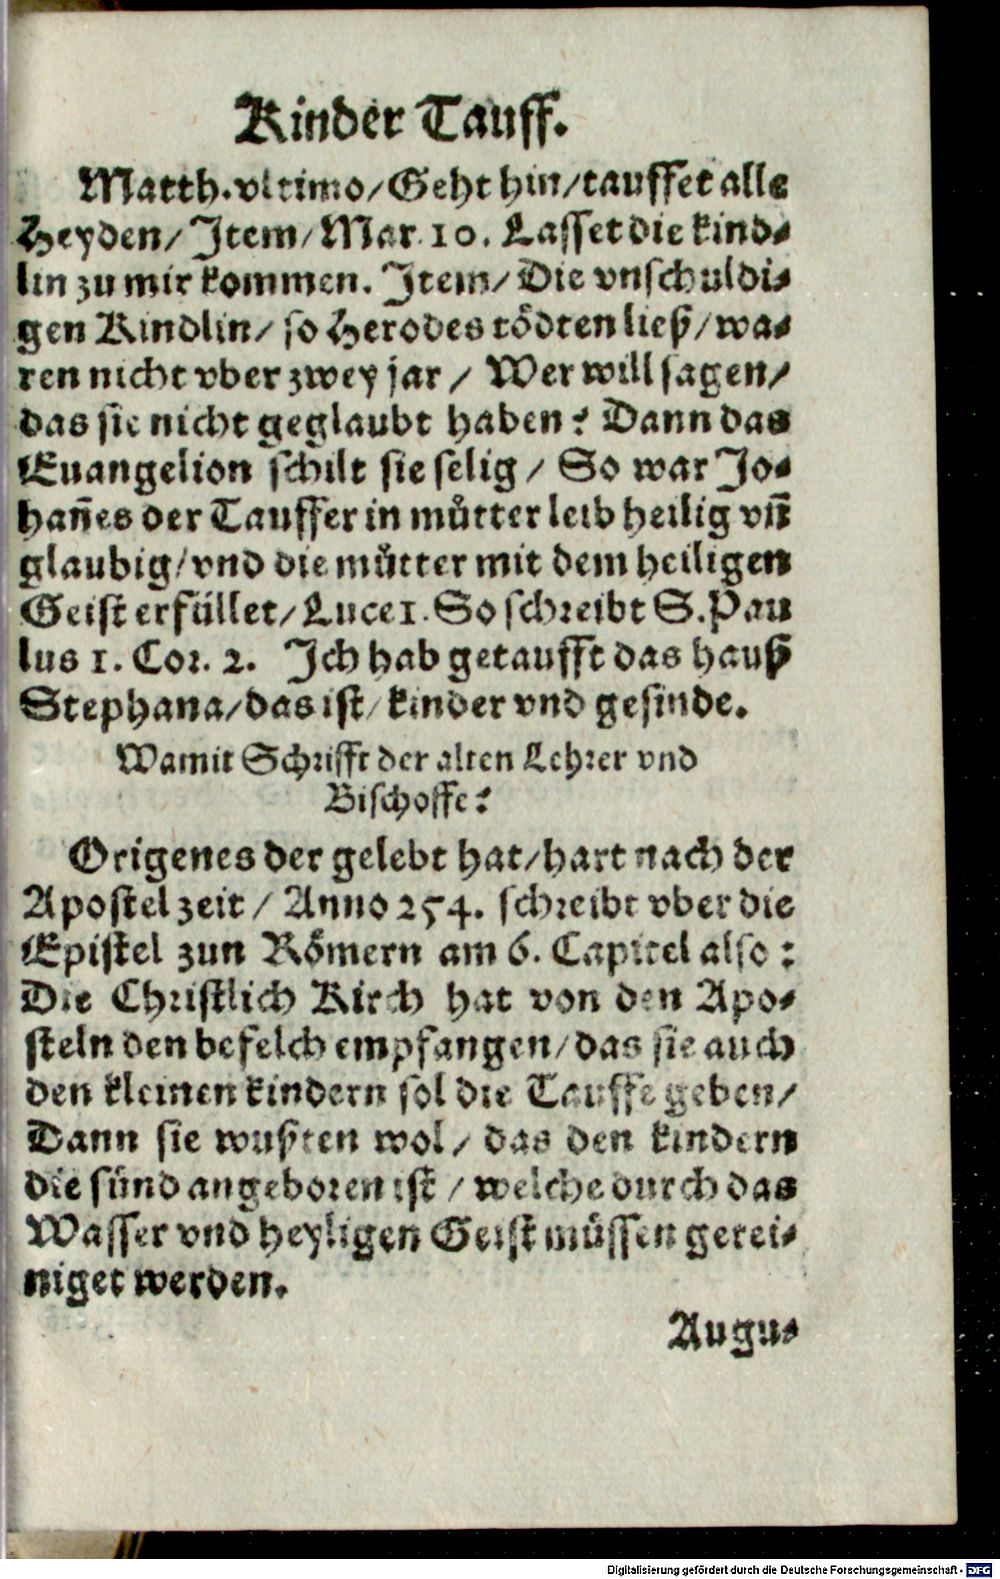 Kinder Tauff.
Matth. vltimo/Geht hin/tauffet alle
Heyden/ Item/Mar. 10. Lasset die kind⸗
lin zu mir kommen. Item/ Die vnschuldi⸗
gen Kindlin/ so Herodes tödten ließ/wa⸗
ren nicht vber zwey jar / Wer will sagen/
das sie nicht geglaubt haben? Dann das
Euangelion schilt sie selig / So war Jo⸗
hañes der Tauffer in můtter leib heilig vñ
glaubig/vnd die můtter mit dem heiligen
Geist erfüllet/Luce 1. So schreibt S. Pau
lus 1. Cor. 2. Ich hab getaufft das hauß
Stephana/das ist/kinder vnd gesinde.
Wamit Schrifft der alten Lehrer vnd
Bischoffe?
Origenes der gelebt hat/hart nach der
Apostel zeit / Anno 254. schreibt vber die
Epistel zun Römern am 6. Capitel also:
Die Christlich Kirch hat von den Apo⸗
steln den befelch empfangen/das sie auch
den kleinen kindern sol die Tauffe geben/
Dann sie wußten wol/ das den kindern
die sünd angeboren ist / welche durch das
Wasser vnd heyligen Geist müssen gerei⸗
niget werden.
Augu⸗
Digitalisierung gefördert durch die Deutsche Forschungsgemeinschaft - DFG